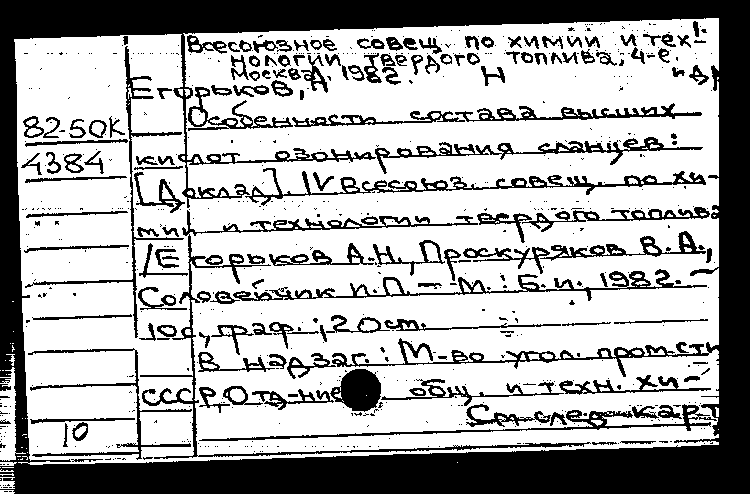 Всесоюзное совещ. по химии и тех-
нологии твердого топлива, 4-е.
Москва, 1982.
Егорьков, А Н и др
82-50К
Особенности состава высших
4384
кислот озонирования сланцев:
[Доклад]. IV Всесоюз. совещ. по хи-
мии и технологии твердого топлива
/Егорьков А.Н., Проскуряков В.А.,
Соловейчик И.П. — М. : Б.и., 1982. —
10с., граф. ; 20 см.
В надзаг. : М-во угол. пром-сти
СССР, Отд-ние общ. и техн. хи-
См след карт
10